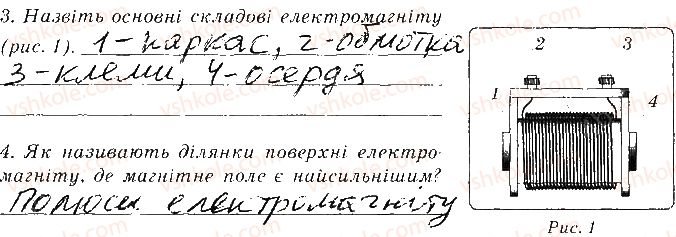 3. Назвіть основні складові електромагніту
(рис. 1). 1-каркас, 2-обмотка
3-клеми, 4-осердя
4. Як називають ділянки поверхні електро-
магніту, де магнітне поле є найсильнішим?
Полюси електромагніту
2 3
1 4
Рис. 1
vshkole.com